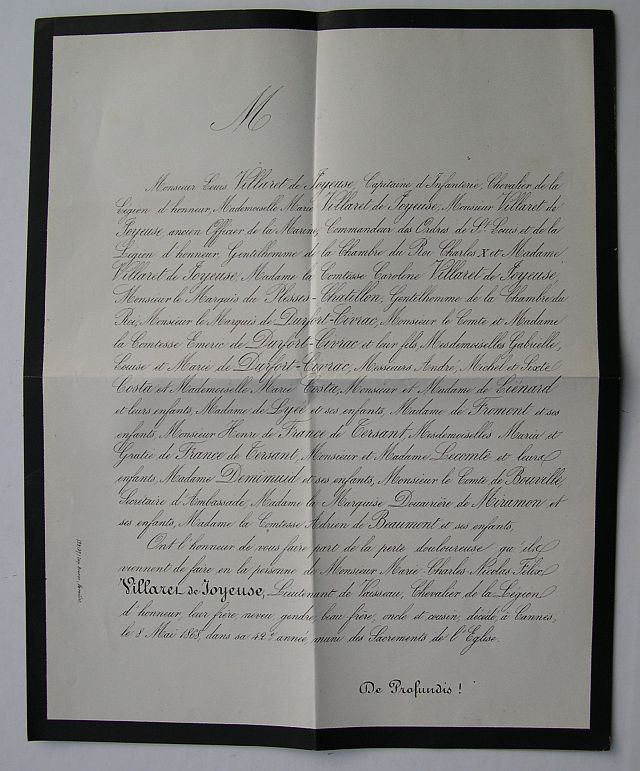 M
Monsieur Louis Villaret de Joyeuse, Capitaine d'Infanterie, Chevalier de la
Légion d'honneur, Mademoiselle Marie Villaret de Joyeuse, Monsieur Villaret de
Joyeuse, ancien Officier de la Marine, Commandeur des Ordres de St. Louis et de la
Légion d'honneur, Gentilhomme de la Chambre du Roi Charles X et Madame
Villaret de Joyeuse, Madame la Comtesse Caroline Villaret de Joyeuse,
Monsieur le Marquis du Plessis-Chatillon, Gentilhomme de la Chambre du
Roi, Monsieur le Marquis de Durfort-Civrac, Monsieur le Comte et Madame
la Comtesse Emeric de Durfort-Civrac et leur fils, Mesdemoiselles Gabrielle,
Louise et Marie de Durfort-Civrac, Messieurs André, Michel et Sixte
Costa et Mademoiselle Marie Costa, Monsieur et Madame de Liénard
et leurs enfants, Madame de Lyée et ses enfants, Madame de Fromont et ses
enfants, Monsieur Henri de France de Tersant, Mesdemoiselles Maria et
de France de Tersant, Monsieur et Madame Leconte et leurs
enfants, Madame Denimuid et ses enfants, Monsieur le Comte de Bouville,
Secrétaire d'Ambassade, Madame la Marquise Douairière de Miramon et
ses enfants, Madame la Comtesse Adrien de Beaumont et ses enfants,
Ont l'honneur de vous faire part de la perte douloureuse qu'ils
viennent de faire en la personne de Monsieur Marie-Charles-Nicolas-Félix
Villaret de Joyeuse, Lieutenant de Vaisseau, Chevalier de la Légion
d'honneur, leur frère, neveu, gendre, beau-frère, oncle et cousin, décédé à Cannes,
le 8 Mai 1868, dans sa 42e année, muni des Sacrements de l'Eglise.
De Profundis !